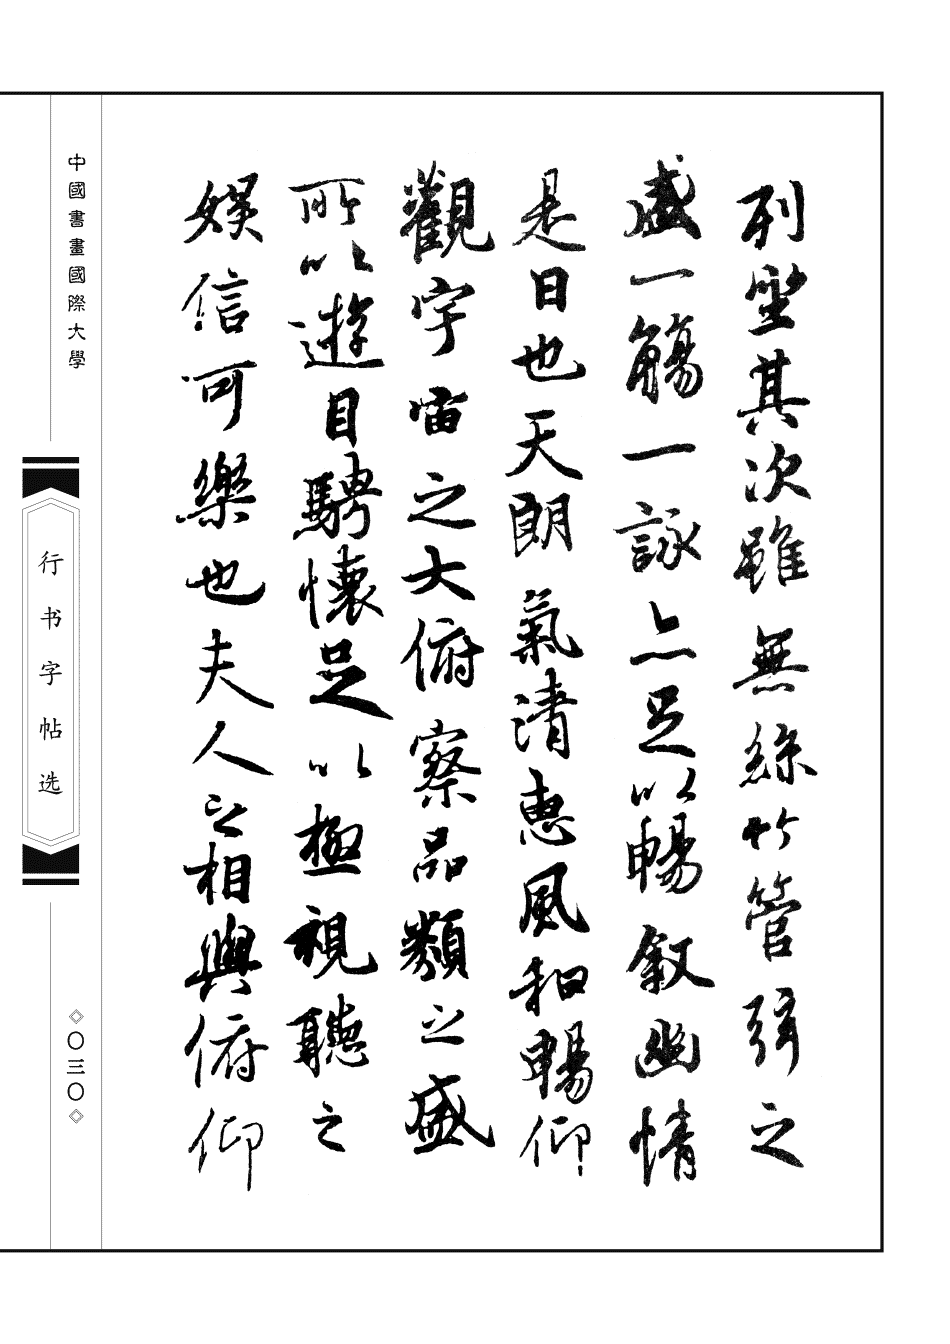 列坐其次雖無絲竹管弦之
盛一觴一詠亦足以暢敘幽情
是日也天朗氣清惠風和暢仰
觀宇宙之大俯察品類之盛
所以遊目騁懷足以極視聽之
娛信可樂也夫人之相與俯仰
中國書畫國際大學
行书字帖选
◇〇三〇◇